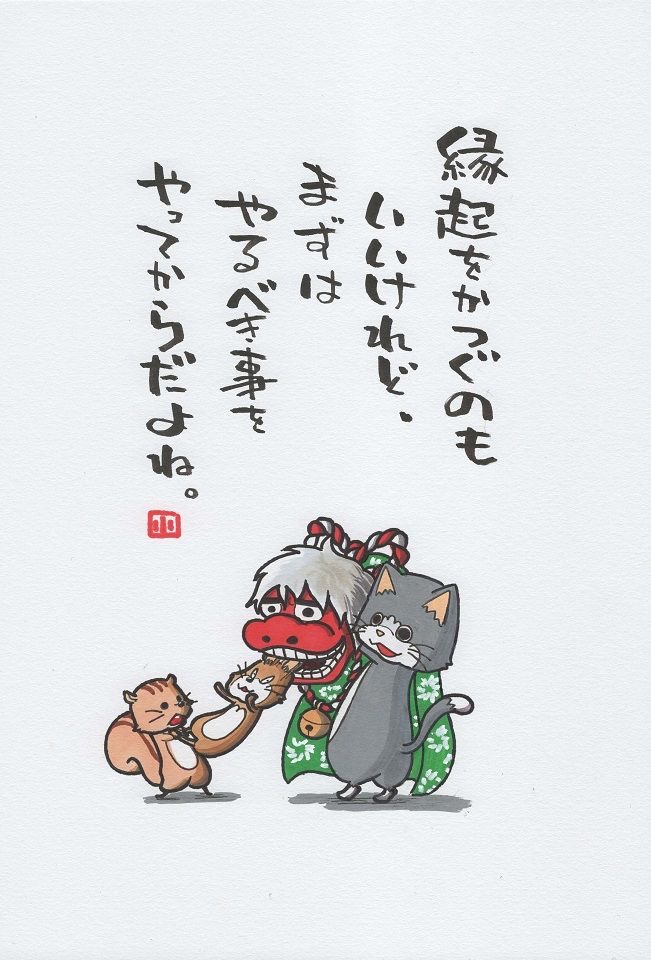 縁起をかつぐのも
いいけれど、
まずは
やるべき事を
やってからだよね。